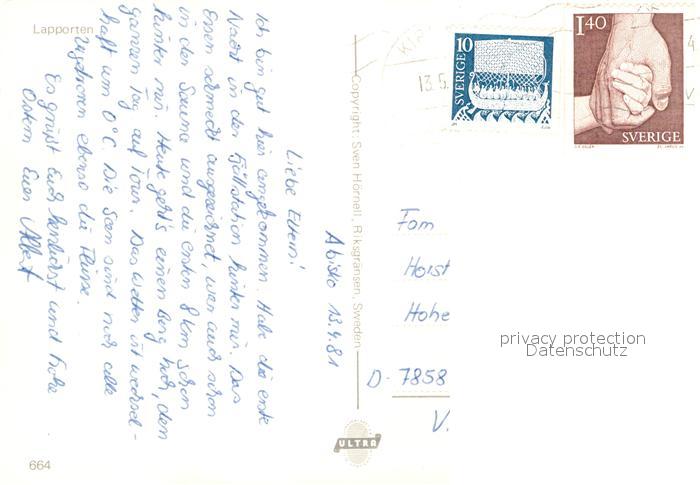 Lapporten
Abisko 13.4.81
Liebe Eltern!
Ich bin gut hier angekommen. Habe die erste
Nacht in der Fjällstation hinter mir. Das
Essen schmeckt ausgezeichnet, war auch schon
in der Sauna und die ersten 8 km schon
hinter mir. Heute geht's einen Berg hoch, den
ganzen Tag auf Tour. Das Wetter ist wechsel-
haft um 0°C. Die Seen sind noch alle
zugefroren ebenso die Flüsse.
Es grüßt Euch herzlichst und frohe
Ostern Euer Albert
664
Copyright: Sven Hörnell, Riksgränsen, Sweden
ULTRA
SVERIGE 10
1.40
SVERIGE
13.5
4
V
Fam
Horst
Hohe
D-7858
V.
privacy protection
Datenschutz